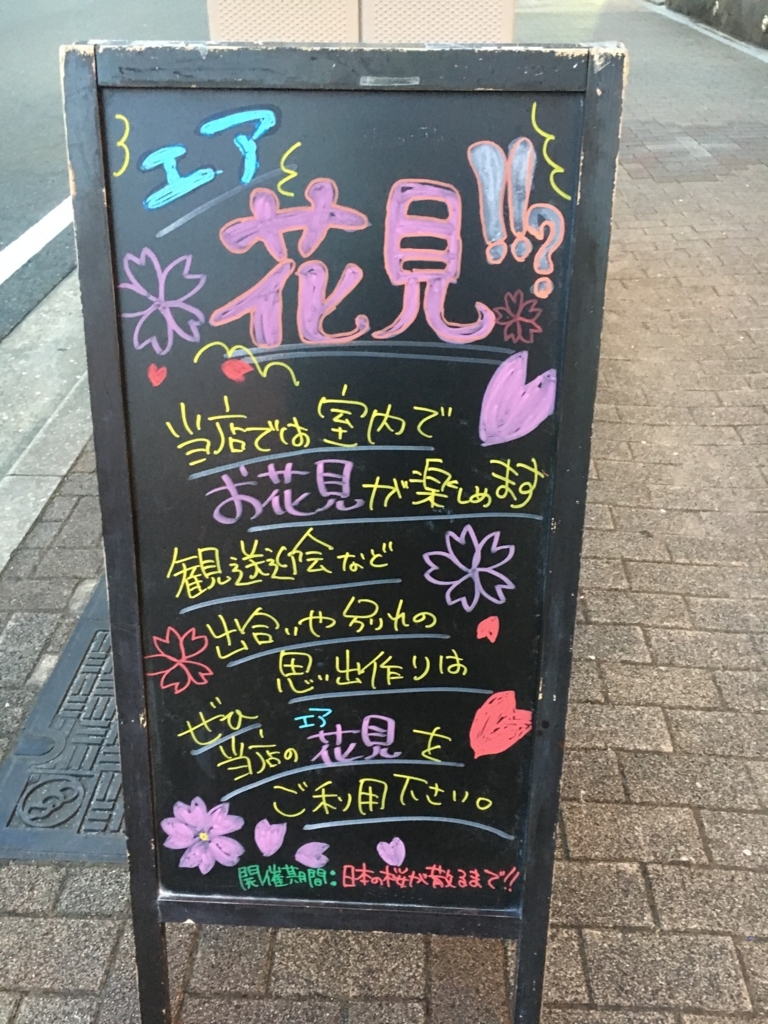 エア
花見!!?
当店では室内で
お花見が楽しめます
観送迎会など
出合いや別れの
思い出作りは
ぜひ
当店のエア花見を
ご利用下さい。
開催期間:日本の桜が散るまで!!